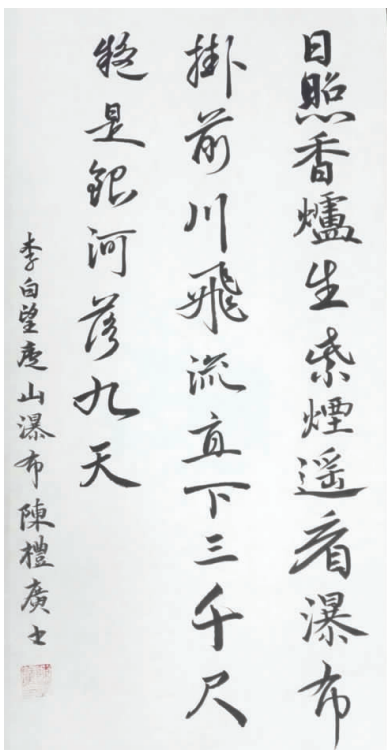 日照香爐生紫煙遥看瀑布
掛前川飛流直下三千尺
疑是銀河落九天
李白望廬山瀑布陳禮廣書